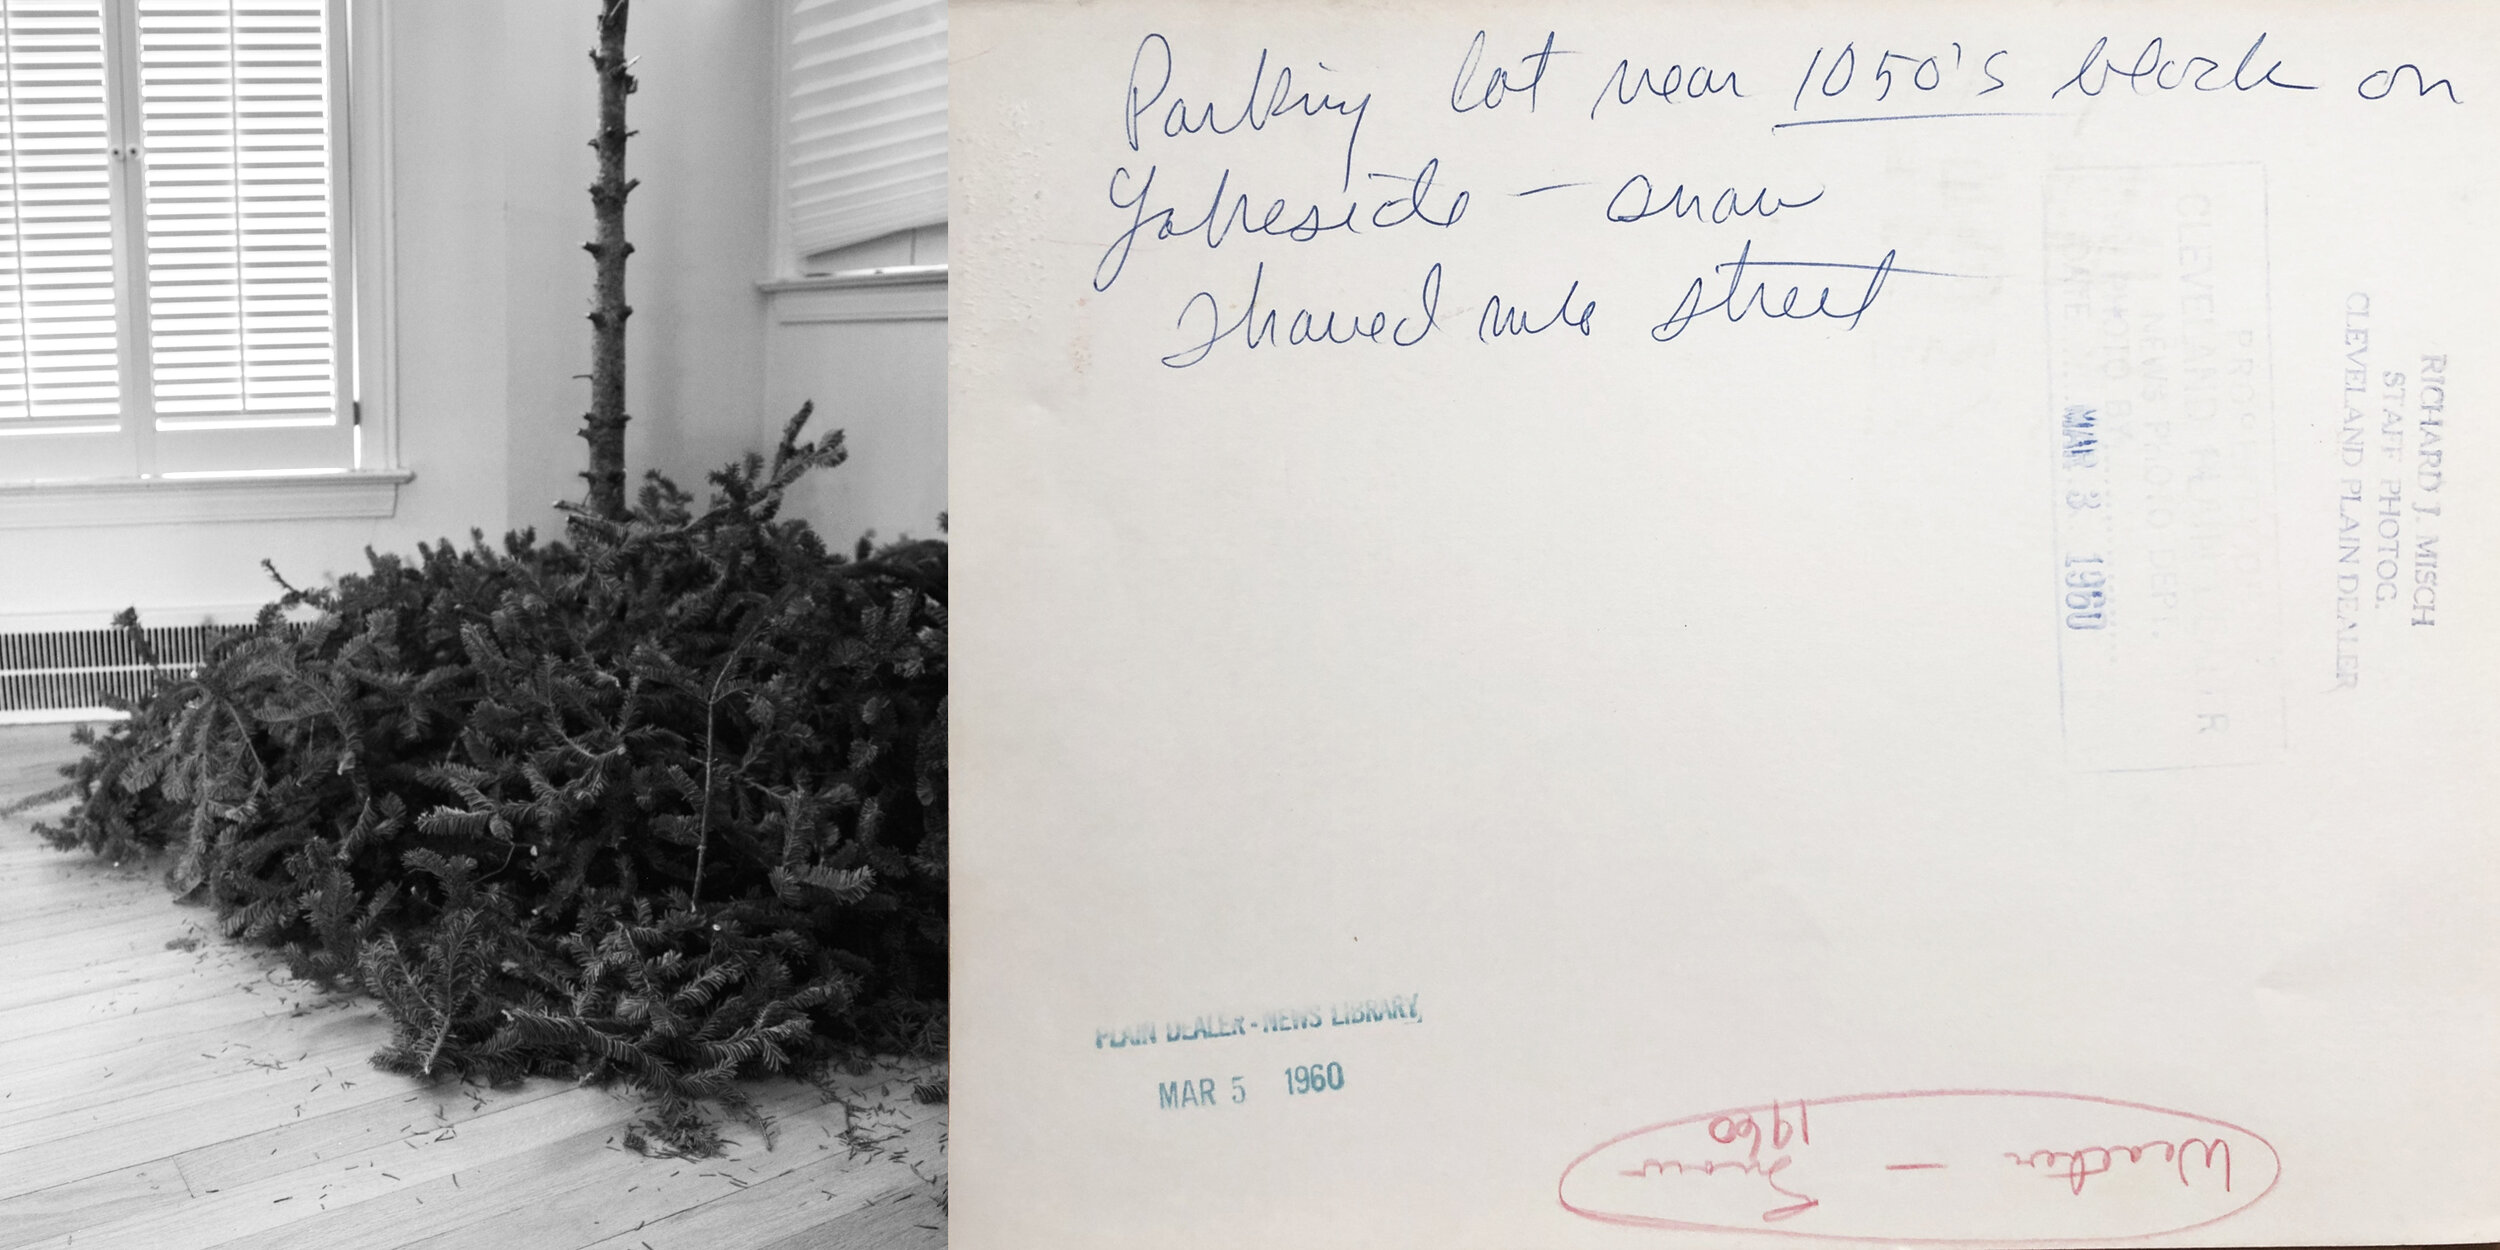 Parking lot near 1050's block on
Lakeside — snow
shoved into street
RICHARD J. MISCH
STAFF PHOTOG.
CLEVELAND PLAIN DEALER
PROPERTY OF
CLEVELAND PLAIN DEALER
NEWS PHOTO DEPT.
PHOTO BY
DATE MAR 3 1960
PLAIN DEALER - NEWS LIBRARY
MAR 5 1960
Weather — Snow
1960